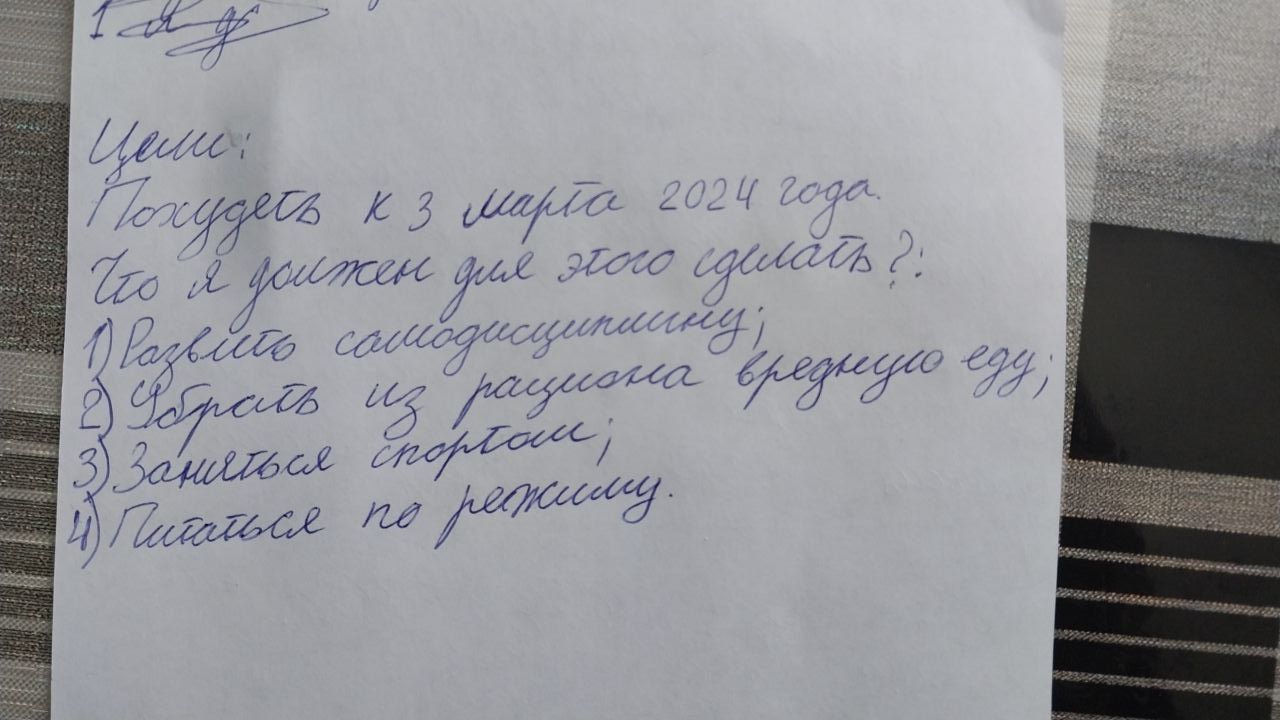 Цели:
Похудеть к 3 марта 2024 года.
Что я должен для этого сделать?:
1) Развить самодисциплину;
2) Убрать из рациона вредную еду;
3) Заняться спортом;
4) Питаться по режиму.